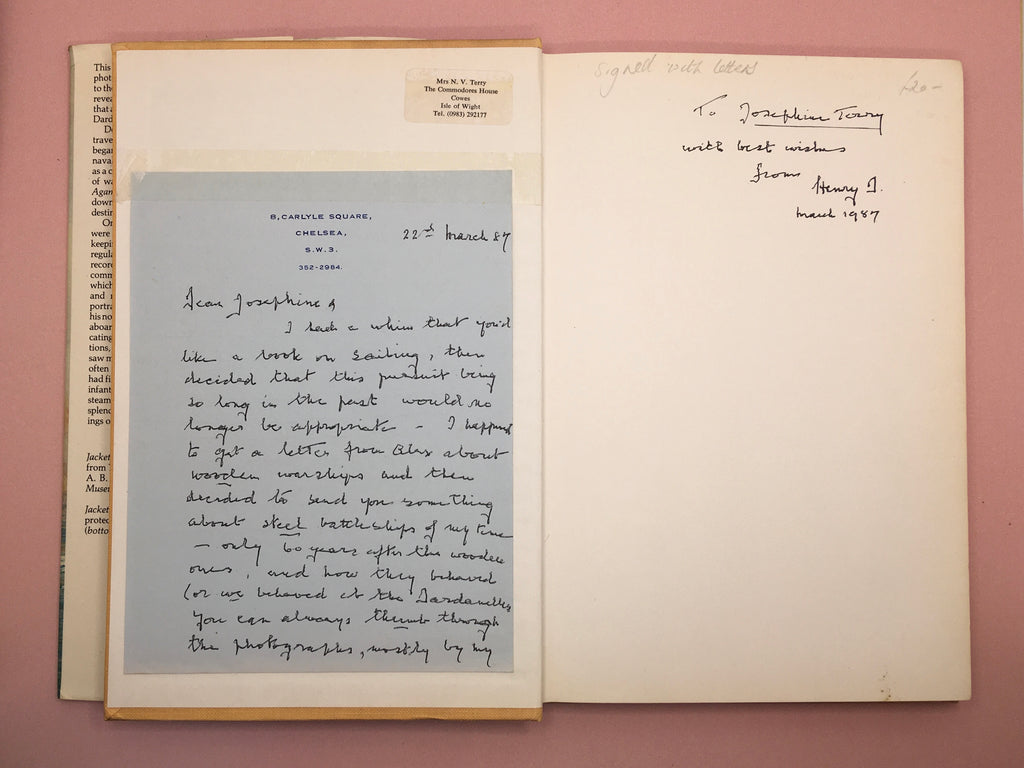 This
phot
to the
revea
that a
Dard
De
trave
began
nava
as a c
of wa
Agan
down
destin
On
were
keepi
regula
record
comm
which
and
portra
his no
aboar
cating
tions,
saw m
often
had fi
infant
steam
splend
ings o
Jacket
from
A. B.
Museu
Jacket
protec
(botto
Mrs N. V. Terry
The Commodores House
Cowes
Isle of Wight
Tel. (0983) 292177
8, CARLYLE SQUARE,
CHELSEA,
S.W.3.
352-2984.
22nd March 87
Dear Josephine
I had a whim that you'd
like a book on sailing, then
decided that this pursuit being
so long in the past would no
longer be appropriate - I happened
to get a letter from Alex about
wooden warships and then
decided to send you something
about steel battleships of my time
- only 60 years after the wooden
ones, and how they behaved
(or we behaved at the Dardanelles
You can always thumb through
the photographs, mostly by my
signed with letters
To Josephine Terry
with best wishes
from
Henry D.
March 1987